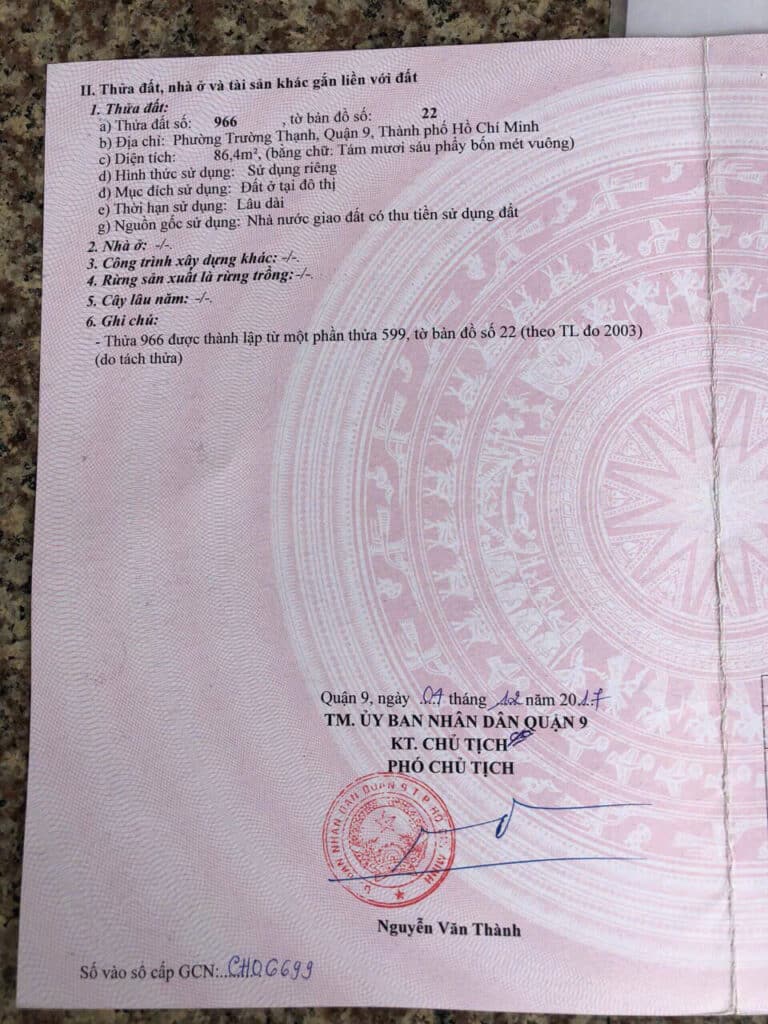 II. Thửa đất, nhà ở và tài sản khác gắn liền với đất
1. Thửa đất:
a) Thửa đất số: 966 , tờ bản đồ số: 22
b) Địa chỉ: Phường Trường Thạnh, Quận 9, Thành phố Hồ Chí Minh
c) Diện tích: 86,4m², (bằng chữ: Tám mươi sáu phẩy bốn mét vuông)
d) Hình thức sử dụng: Sử dụng riêng
đ) Mục đích sử dụng: Đất ở tại đô thị
e) Thời hạn sử dụng: Lâu dài
g) Nguồn gốc sử dụng: Nhà nước giao đất có thu tiền sử dụng đất
2. Nhà ở: -/-.
3. Công trình xây dựng khác: -/-.
4. Rừng sản xuất là rừng trồng:-/-.
5. Cây lâu năm: -/-.
6. Ghi chú:
- Thửa 966 được thành lập từ một phần thửa 599, tờ bản đồ số 22 (theo TL đo 2003)
(do tách thửa)
Quận 9, ngày 07 tháng 12 năm 2017
TM. ỦY BAN NHÂN DÂN QUẬN 9
KT. CHỦ TỊCH
PHÓ CHỦ TỊCH
Nguyễn Văn Thành
Số vào sổ cấp GCN:..CH06699